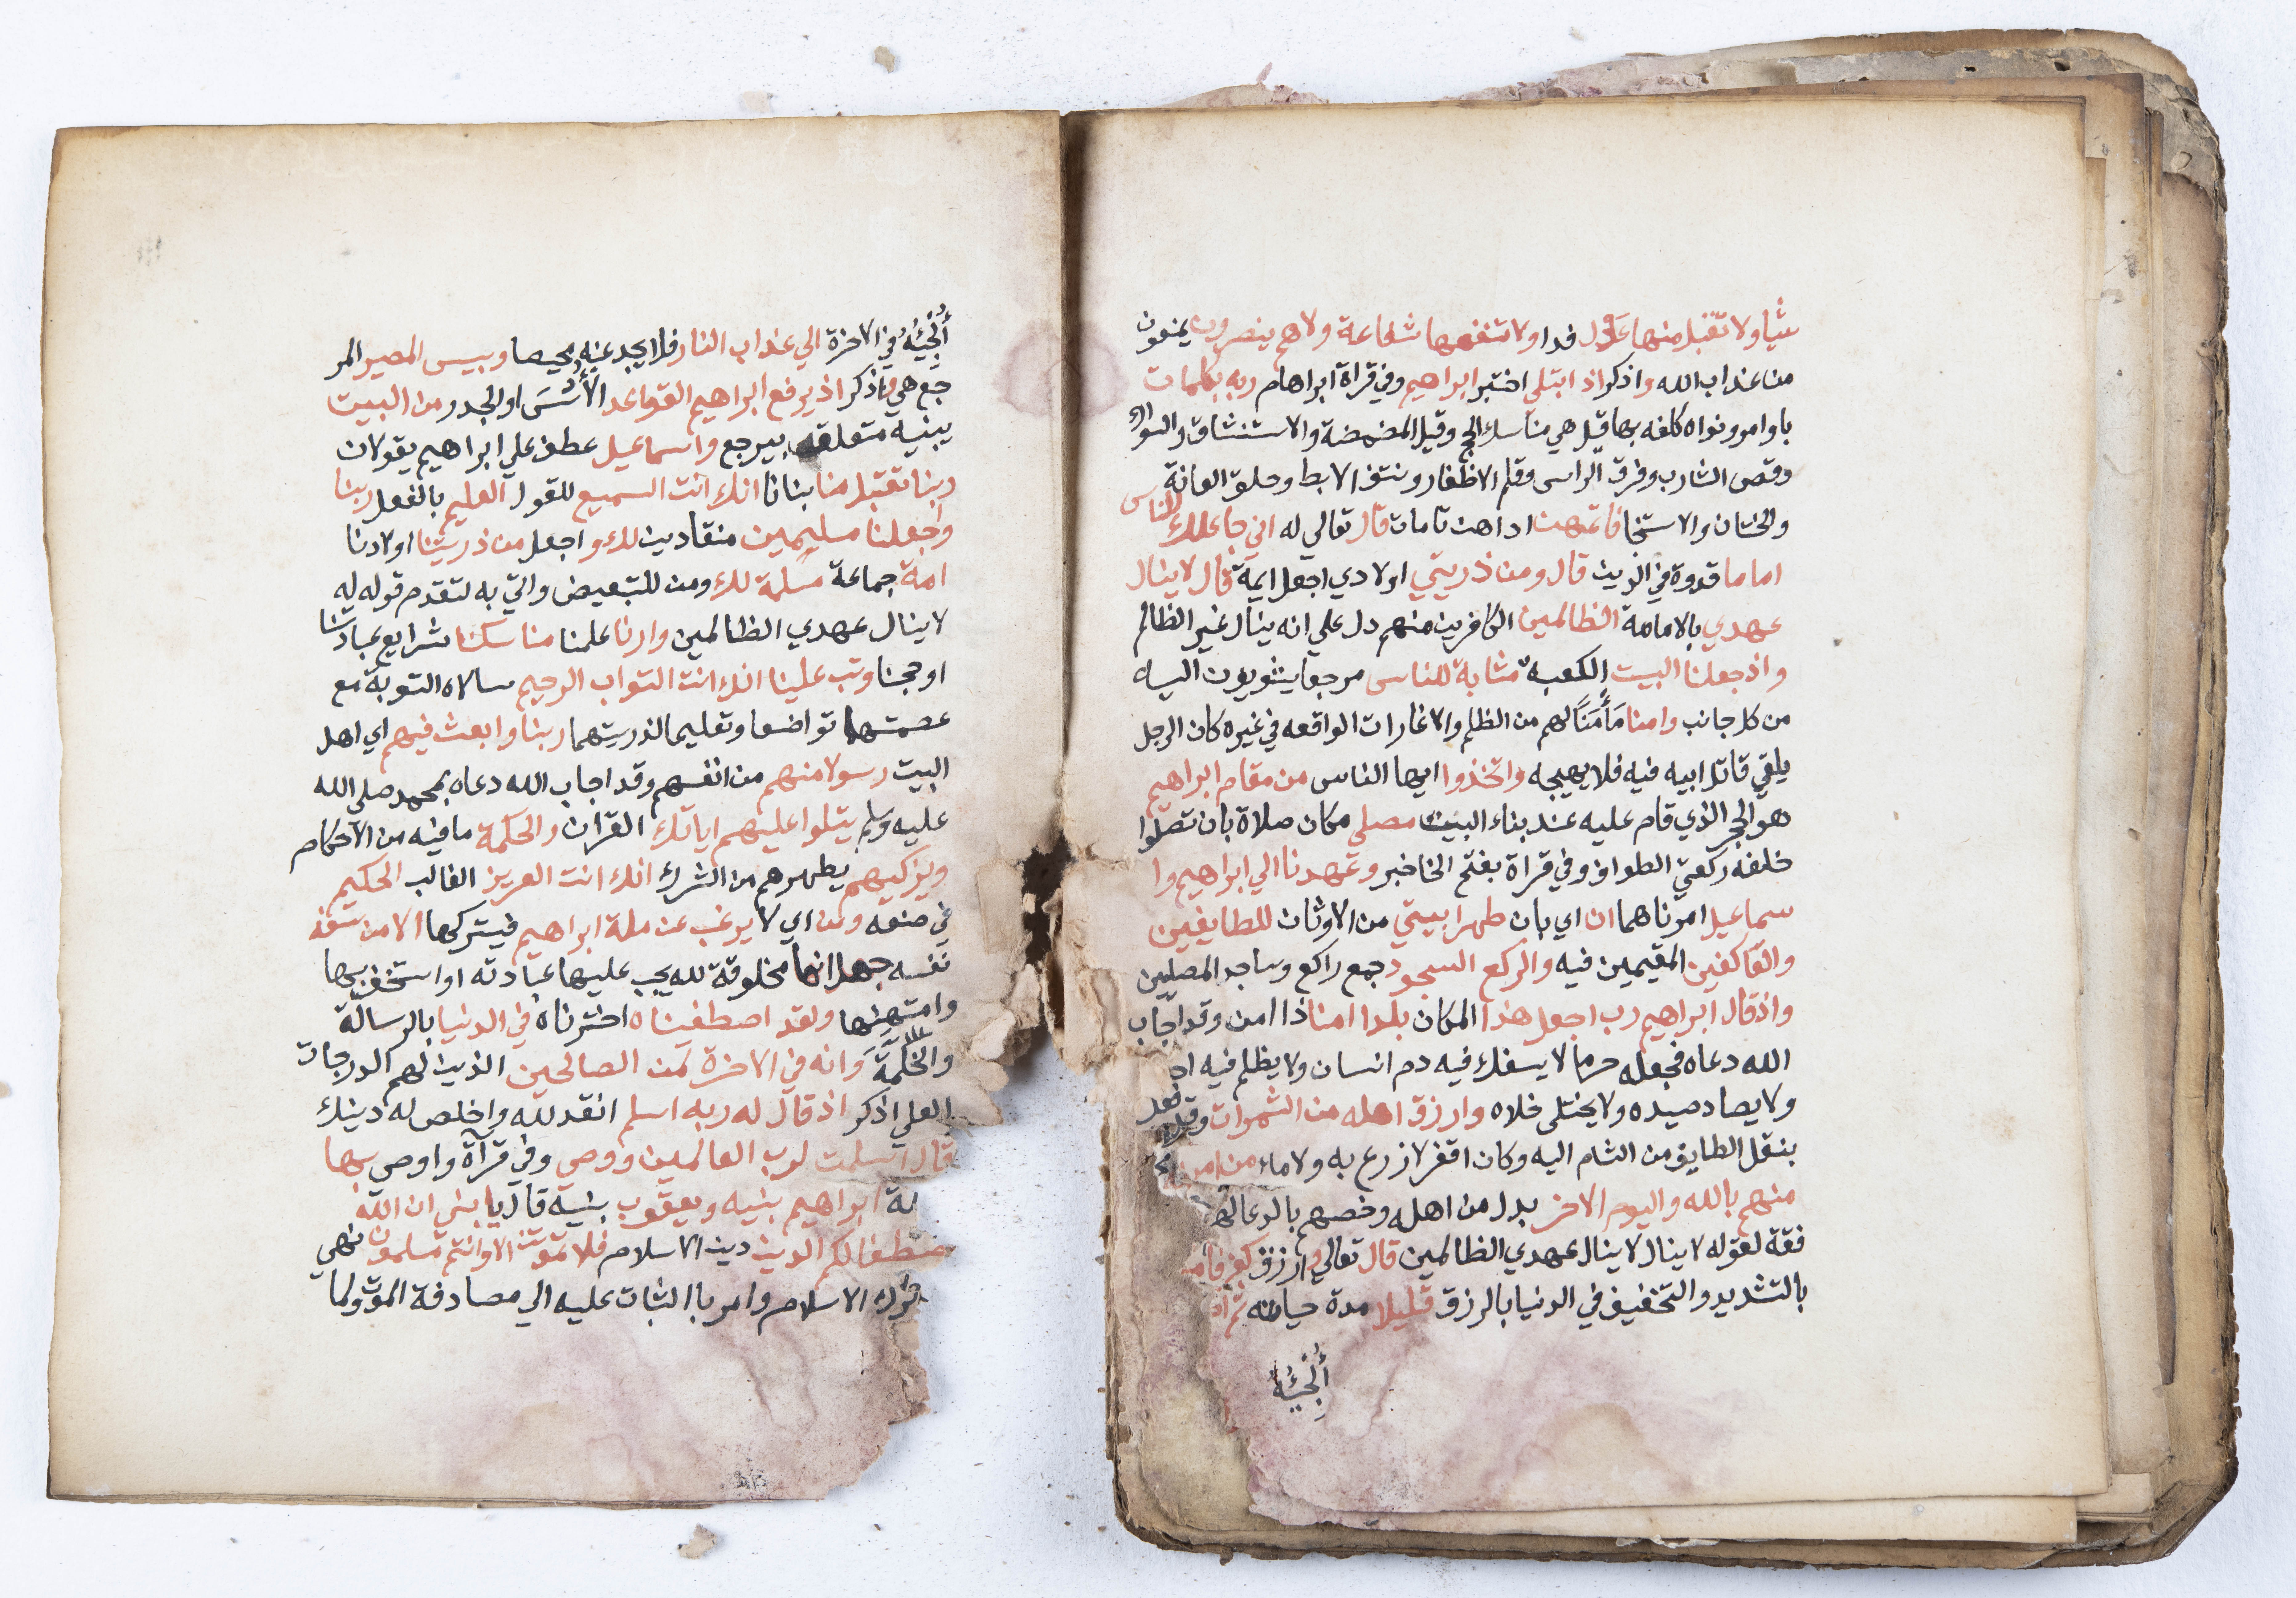 شيا ولا تقبل منها عدل فدا ولا تنفعها شفاعة ولا هم ينصرون يمنعون
من عذاب الله واذكر اذ ابتلي اختبر ابراهيم وفي قراة ابراهام ربه بكلمات
باوامر ونواه كلفه بها قيل هي مناسك الحج وقيل المضمضة والاستنشاق والسواك
وقص الشارب وفرق الراس وقلم الاظفار ونتف الابط وحلق العانة
والختان والاستنجا فاتمهن اداهن تامات قال تعالي له اني جاعلك للناس
اماما قدوة في الدين قال ومن ذريتي اولادي اجعل ايمة قال لا ينال
عهدي بالامامة الظالمين الكافرين منهم دل علي انه ينال غير الظالم
واذ جعلنا البيت الكعبة مثابة للناس مرجعا يثوبون اليه
من كل جانب وامنا مَأْمَنًا لهم من الظلم والاغارات الواقعه في غيره كان الرجل
يلقي قاتل ابيه فيه فلا يهيجه واتخذوا ايها الناس من مقام ابراهيم
هو الحجر الذي قام عليه عند بناء البيت مصلي مكان صلاة بان تصلوا
خلفه ركعتي الطواف وفي قراة بفتح الخا خبر وعهدنا الي ابراهيم وا
سماعيل امرناهما ان اي بان طهرا بيتي من الاوثان للطايفين
والعاكفين المقيمين فيه والركع السجود جمع راكع وساجد المصلين
واذ قال ابراهيم رب اجعل هذا المكان بلدا امنا ذا امن وقد اجاب
الله دعاه فجعله حرما لا يسفك فيه دم انسان ولا يظلم فيه احد
ولا يصاد صيده ولا يختلى خلاه وارزق اهله من الثمرات وقد فعل
بنقل الطايف من الشام اليه وكان اقفر لا زرع به ولا ماء من امن
منهم بالله واليوم الاخر بدل من اهله وخصهم بالدعا لهم
فقة لقوله لا ينال لا ينال عهدي الظالمين قال تعالي وارزق كفر فامتعه
بالتشديد والتخفيف في الدنيا بالرزق قليلا مدة حياته ثم
أُلْجِيُهُ
أُلْجِيُهُ في الاخرة الي عذاب النار فلا يجد عنه محيصا وبيس المصير المر
جع هي واذكر اذ يرفع ابراهيم القواعد الأُسُسَ او الجدر من البيت
يبنيه متعلقه بيرجع واسماعيل عطف علي ابراهيم يقولان
ربنا تقبل منا بنانا انك انت السميع للقول العليم بالفعل ربنا
واجعلنا مسلمين منقادين لك واجعل من ذريتنا اولادنا
امة جماعة مسلمة لك ومن للتبعيض واتي به لتقدم قوله له
لا ينال عهدي الظالمين وارنا علمنا مناسكنا شرايع عبادتنا
او حجنا وتب علينا انك انت التواب الرحيم سالاه التوبة مع
عصمتهما تواضعا وتعليما لذريتهما ربنا وابعث فيهم اي اهل
البيت رسولا منهم من انفسهم وقد اجاب الله دعاه بمحمد صلي الله
عليه وسلم يتلوا عليهم اياتك القران والحكمة ما فيه من الاحكام
ويزكيهم يطهرهم من الشرك انك انت العزيز الغالب الحكيم
في صنعه ومن اي لا يرغب عن ملة ابراهيم فيتركها الا من سفه
نفسه جهل انها مخلوقة لله يجب عليها عبادته او استخف بها
وامتهنها ولقد اصطفيناه اخترناه في الدنيا بالرسالة
والخُلَّة وانه في الاخرة لمن الصالحين الذين لهم الدرجات
العلي اذكر اذ قال له ربه اسلم انقد لله واخلص له دينك
قال اسلمت لرب العالمين ووصي وفي قرآة واوصي بها
لة ابراهيم بنيه ويعقوب بنيه قال يا بني ان الله
صطفا لكم الدين دين الاسلام فلا تموتن الا وانتم مسلمون نهي
ترك الاسلام وامر باالثبات عليه الي مصادفة الموت ولما